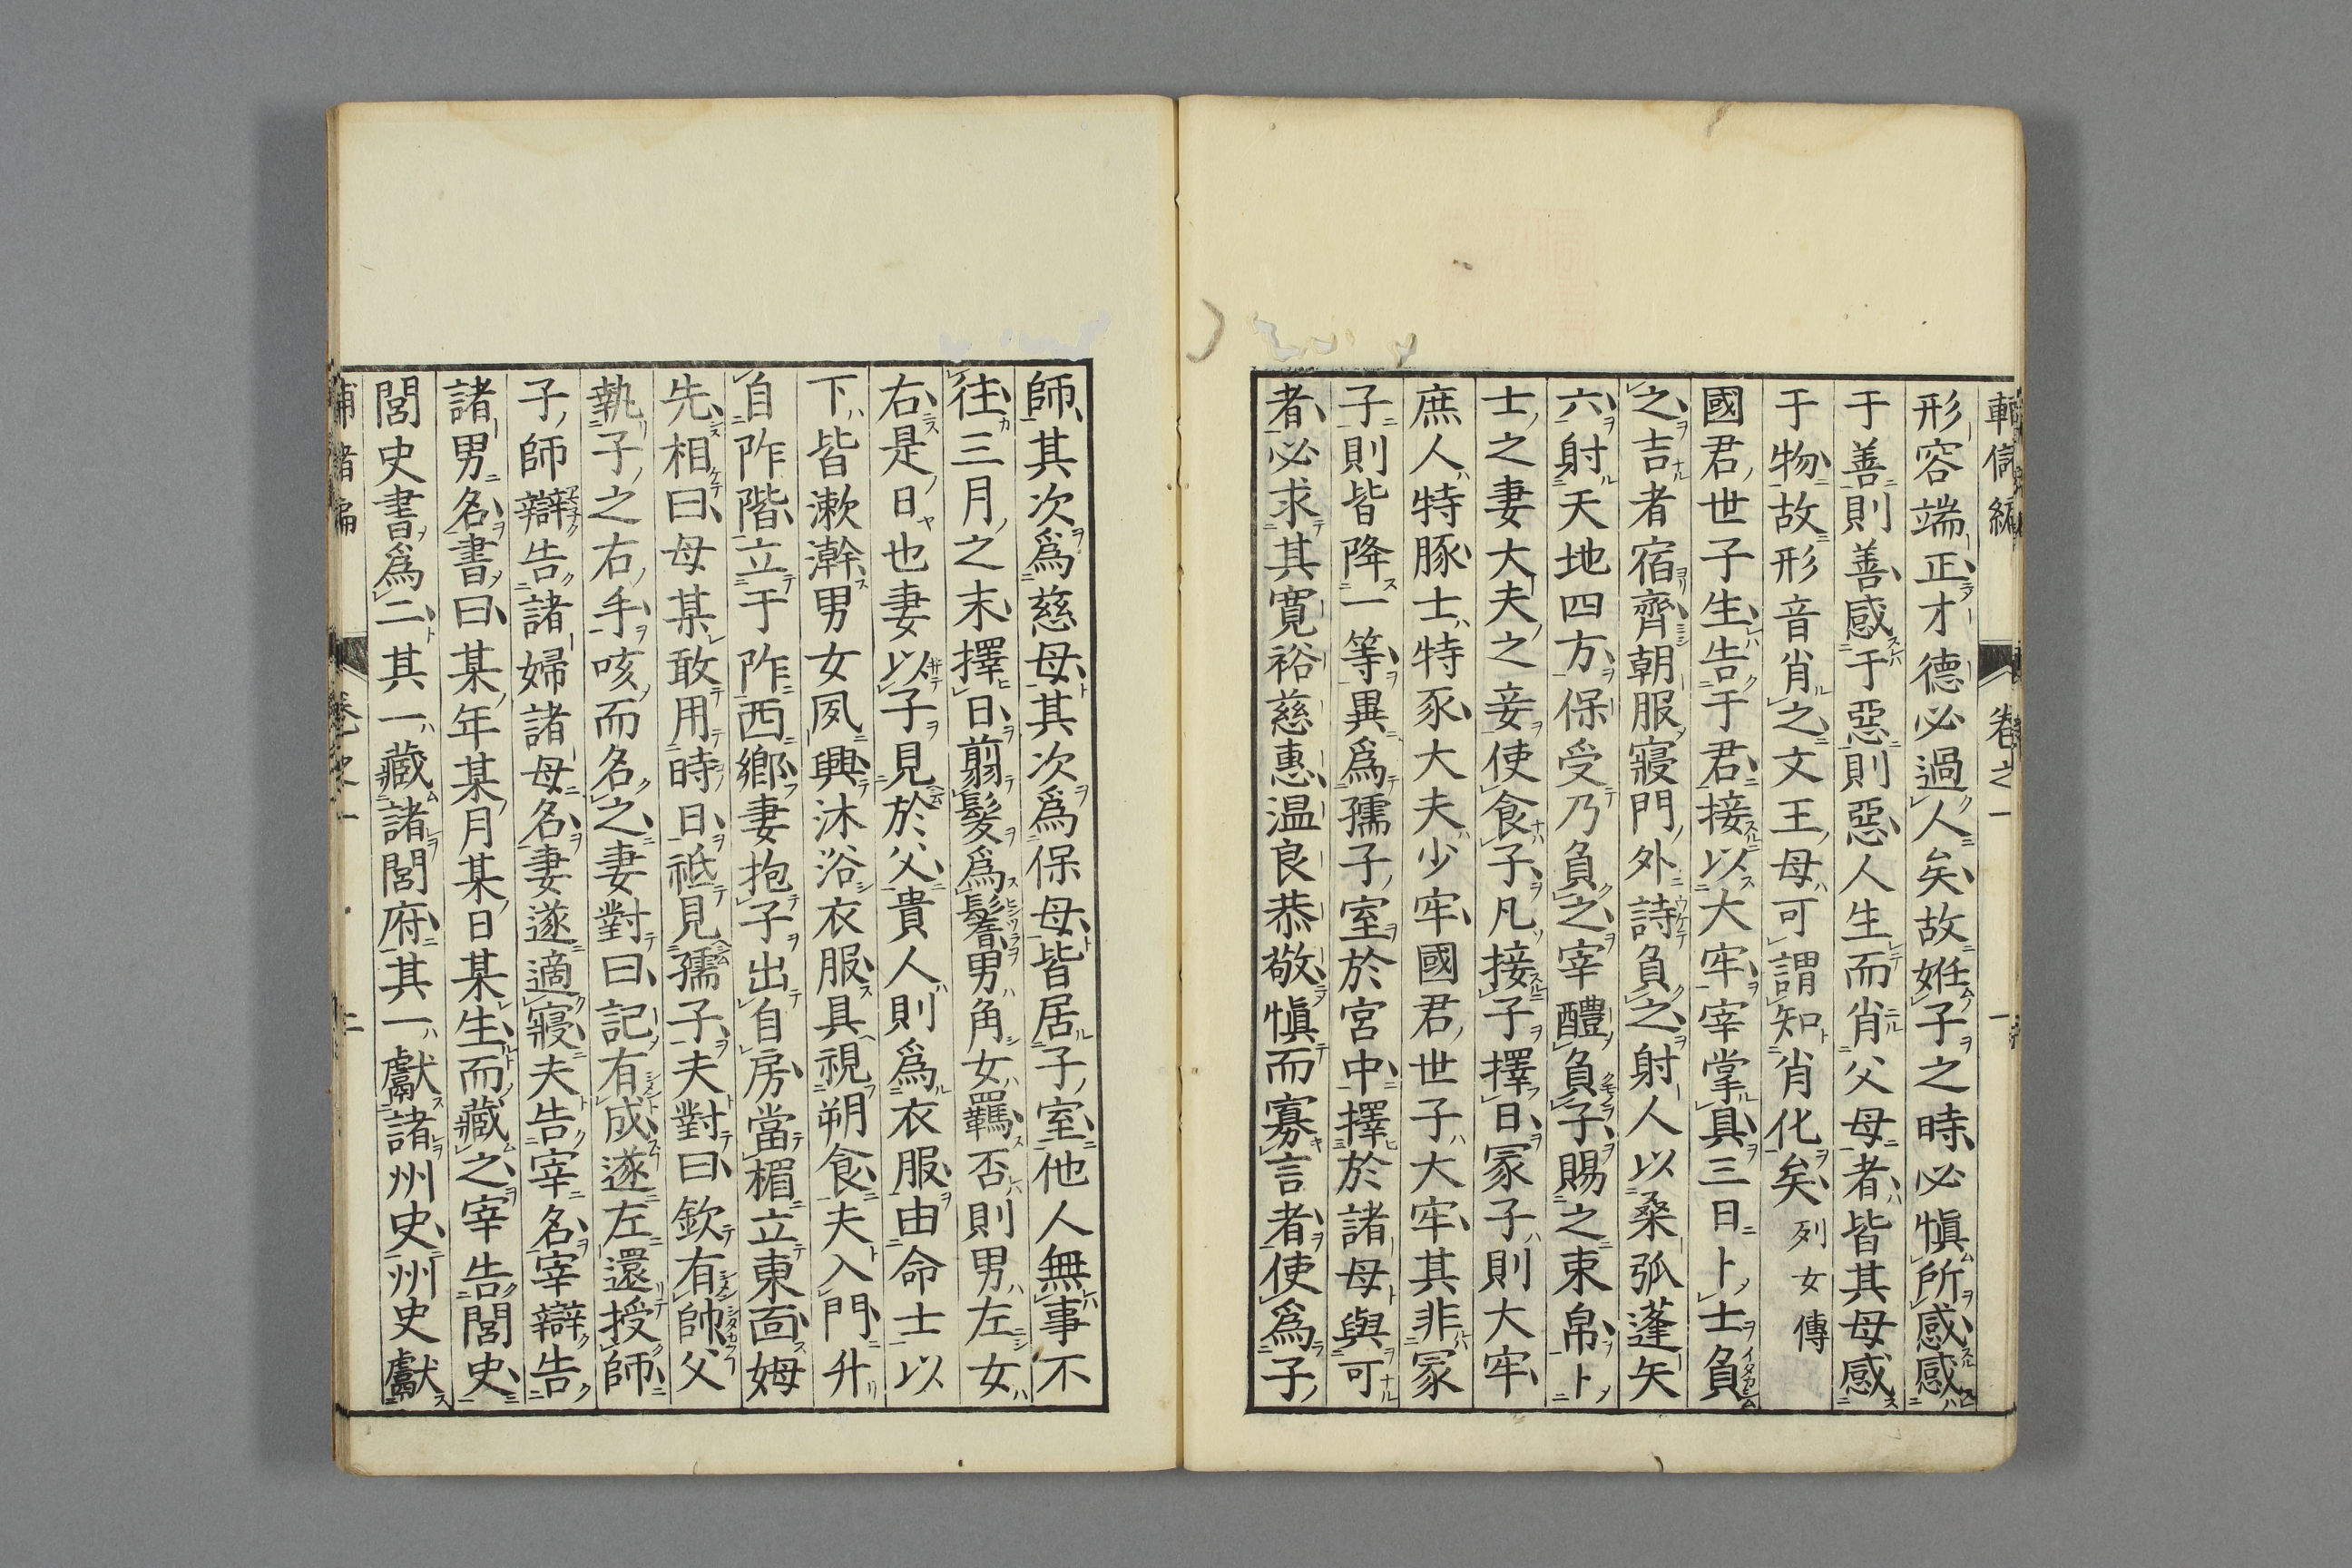 輔儲編 卷之一 一
形容端正才德必過人矣故姙子之時必愼所感感
于善則善感于惡則惡人生而肖父母者皆其母感
于物故形音肖之文王母可謂知肖化矣 列女傳
國君世子生告于君接以大牢宰掌具三日卜士負
之吉者宿齊朝服寢門外詩負之射人以桑弧蓬矢
六射天地四方保受乃負之宰醴負子賜之束帛卜
士之妻大夫之妾使食子凡接子擇日冢子則大牢
庶人特豚士特豕大夫少牢國君世子大牢其非冢
子則皆降一等異爲孺子室於宮中擇於諸母與可
者必求其寛裕慈惠温良恭敬愼而寡言者使爲子
師其次爲慈母其次爲保母皆居子室他人無事不
往三月之末擇日翦髮爲鬌男角女羈否則男左女
右是日也妻以子見於父貴人則爲衣服由命士以
下皆漱澣男女夙興沐浴衣服具視朔食夫入門升
自阼階立于阼西鄕妻抱子出自房當楣立東面姆
先相曰母某敢用時日祗見孺子夫對曰欽有帥父
執子之右手咳而名之妻對曰記有成遂左還授師
子師辯告諸婦諸母名妻遂適寢夫告宰名宰辯告
諸男名書曰某年某月某日某生而藏之宰告閭史
閭史書爲二其一藏諸閭府其一獻諸州史州史獻
輔儲編 卷之一 二